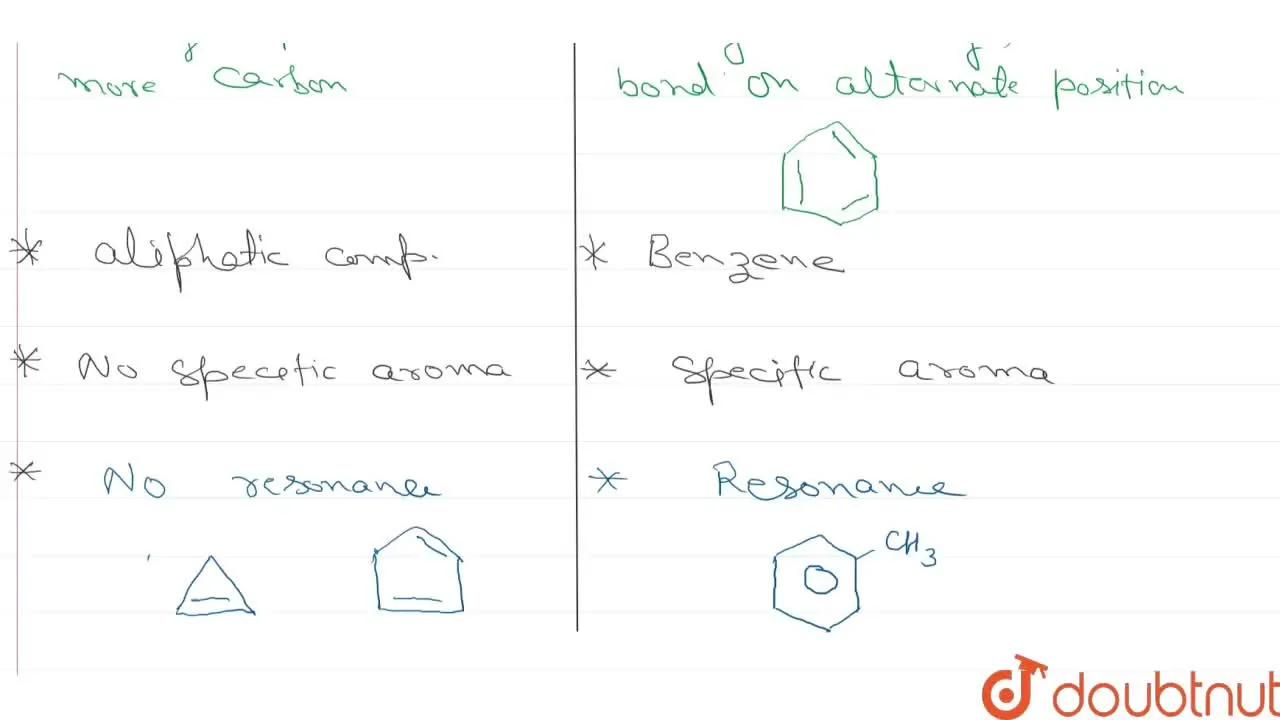 more carbon
* aliphatic comp.
* No specific aroma
* No resonance
bond on alternate position
* Benzene
* Specific aroma
* Resonance
CH3
doubtnut